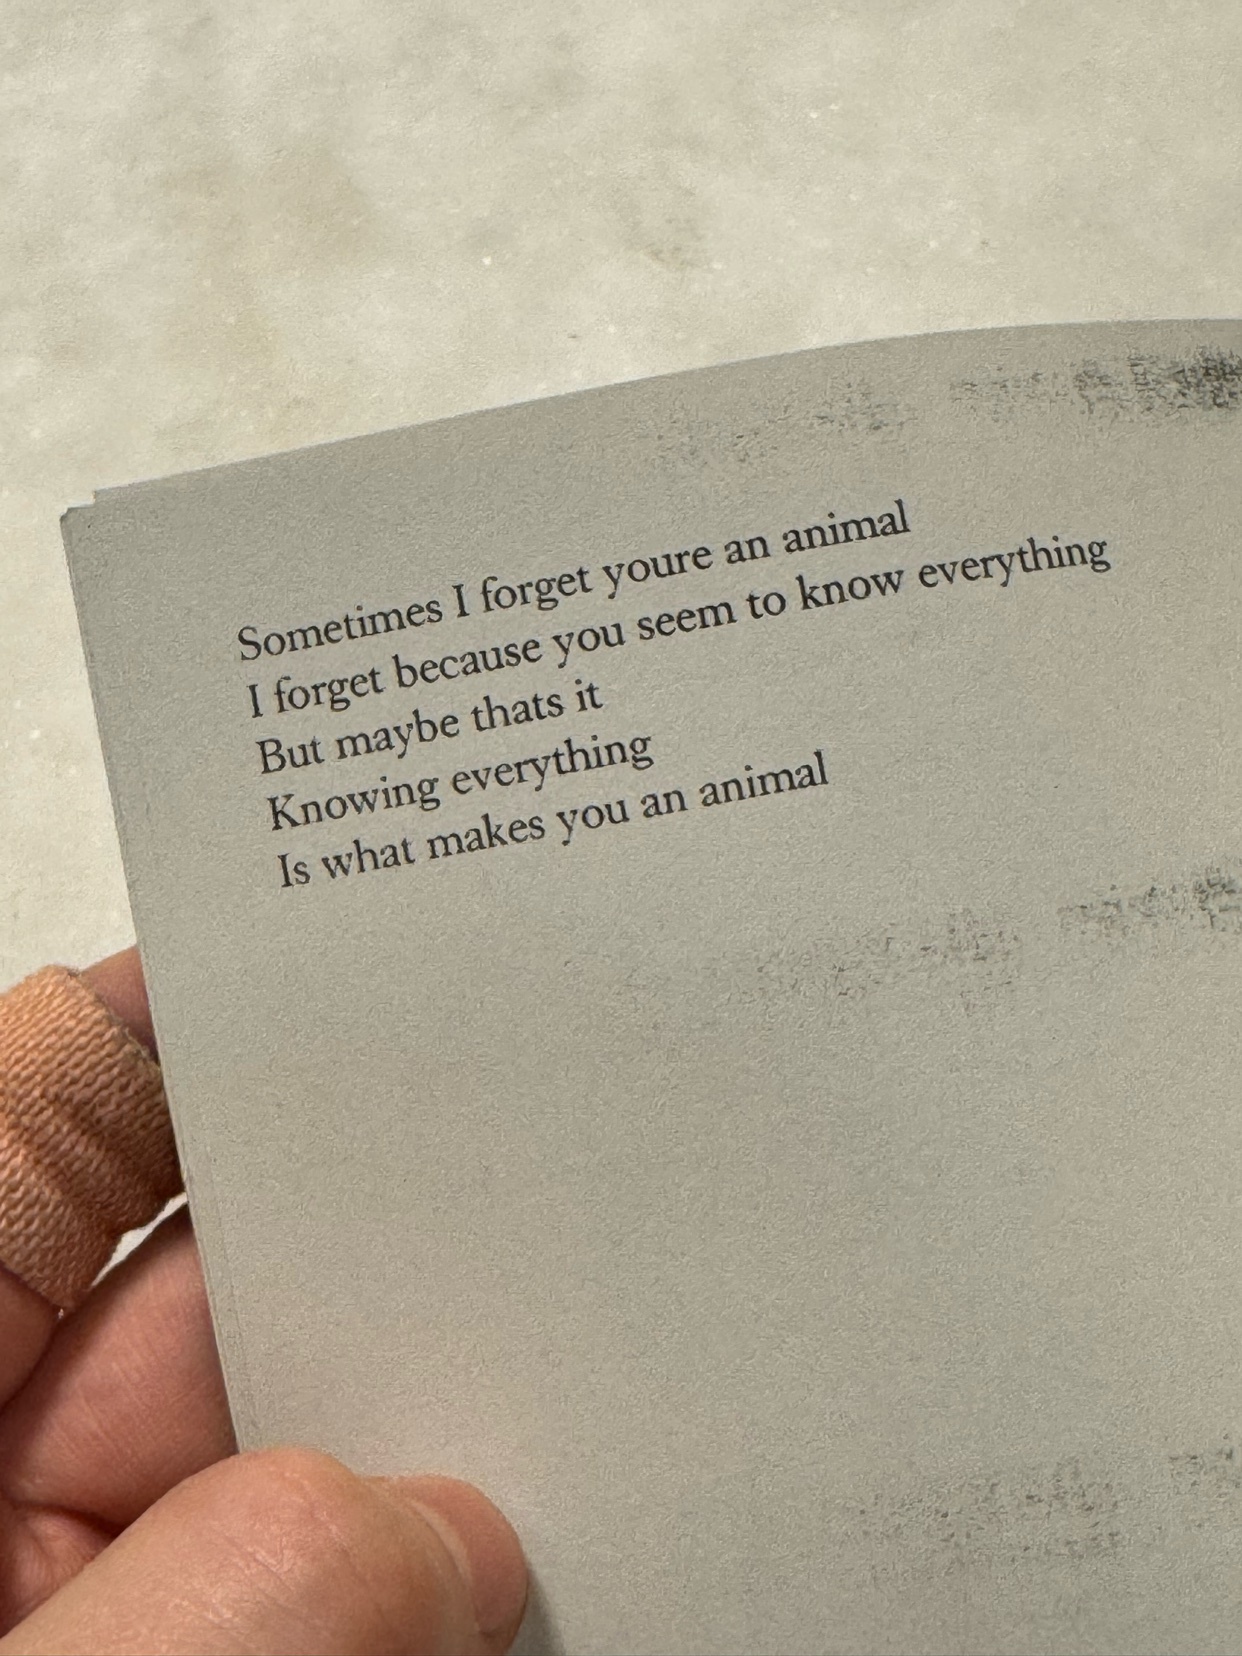 Sometimes I forget youre an animal
I forget because you seem to know everything
But maybe thats it
Knowing everything
Is what makes you an animal